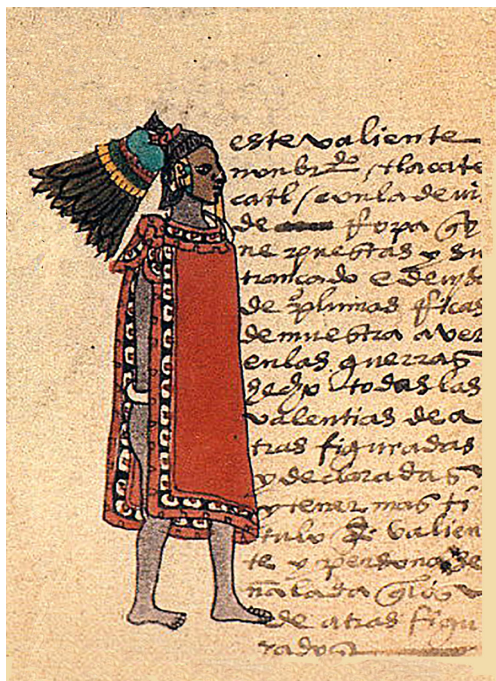 este valiente
nonbrado / tlacate
catl / con la devi
de ropa q̃ tie
ne puestas y su
trançado e devisa
de plumas ricas
demuestra aver
en las guerras
hecho todas las
valentias de a
tras figuradas
y declaradas
y tener mas ti
tulo de valien
te y persona se
ñalada q̃ los
de atras figu
rados